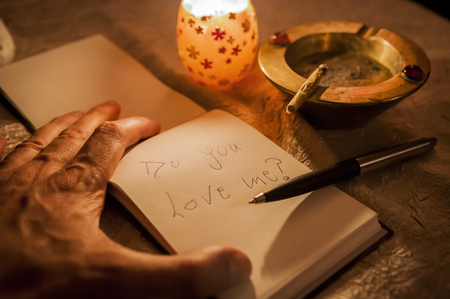 Do you
Love me?